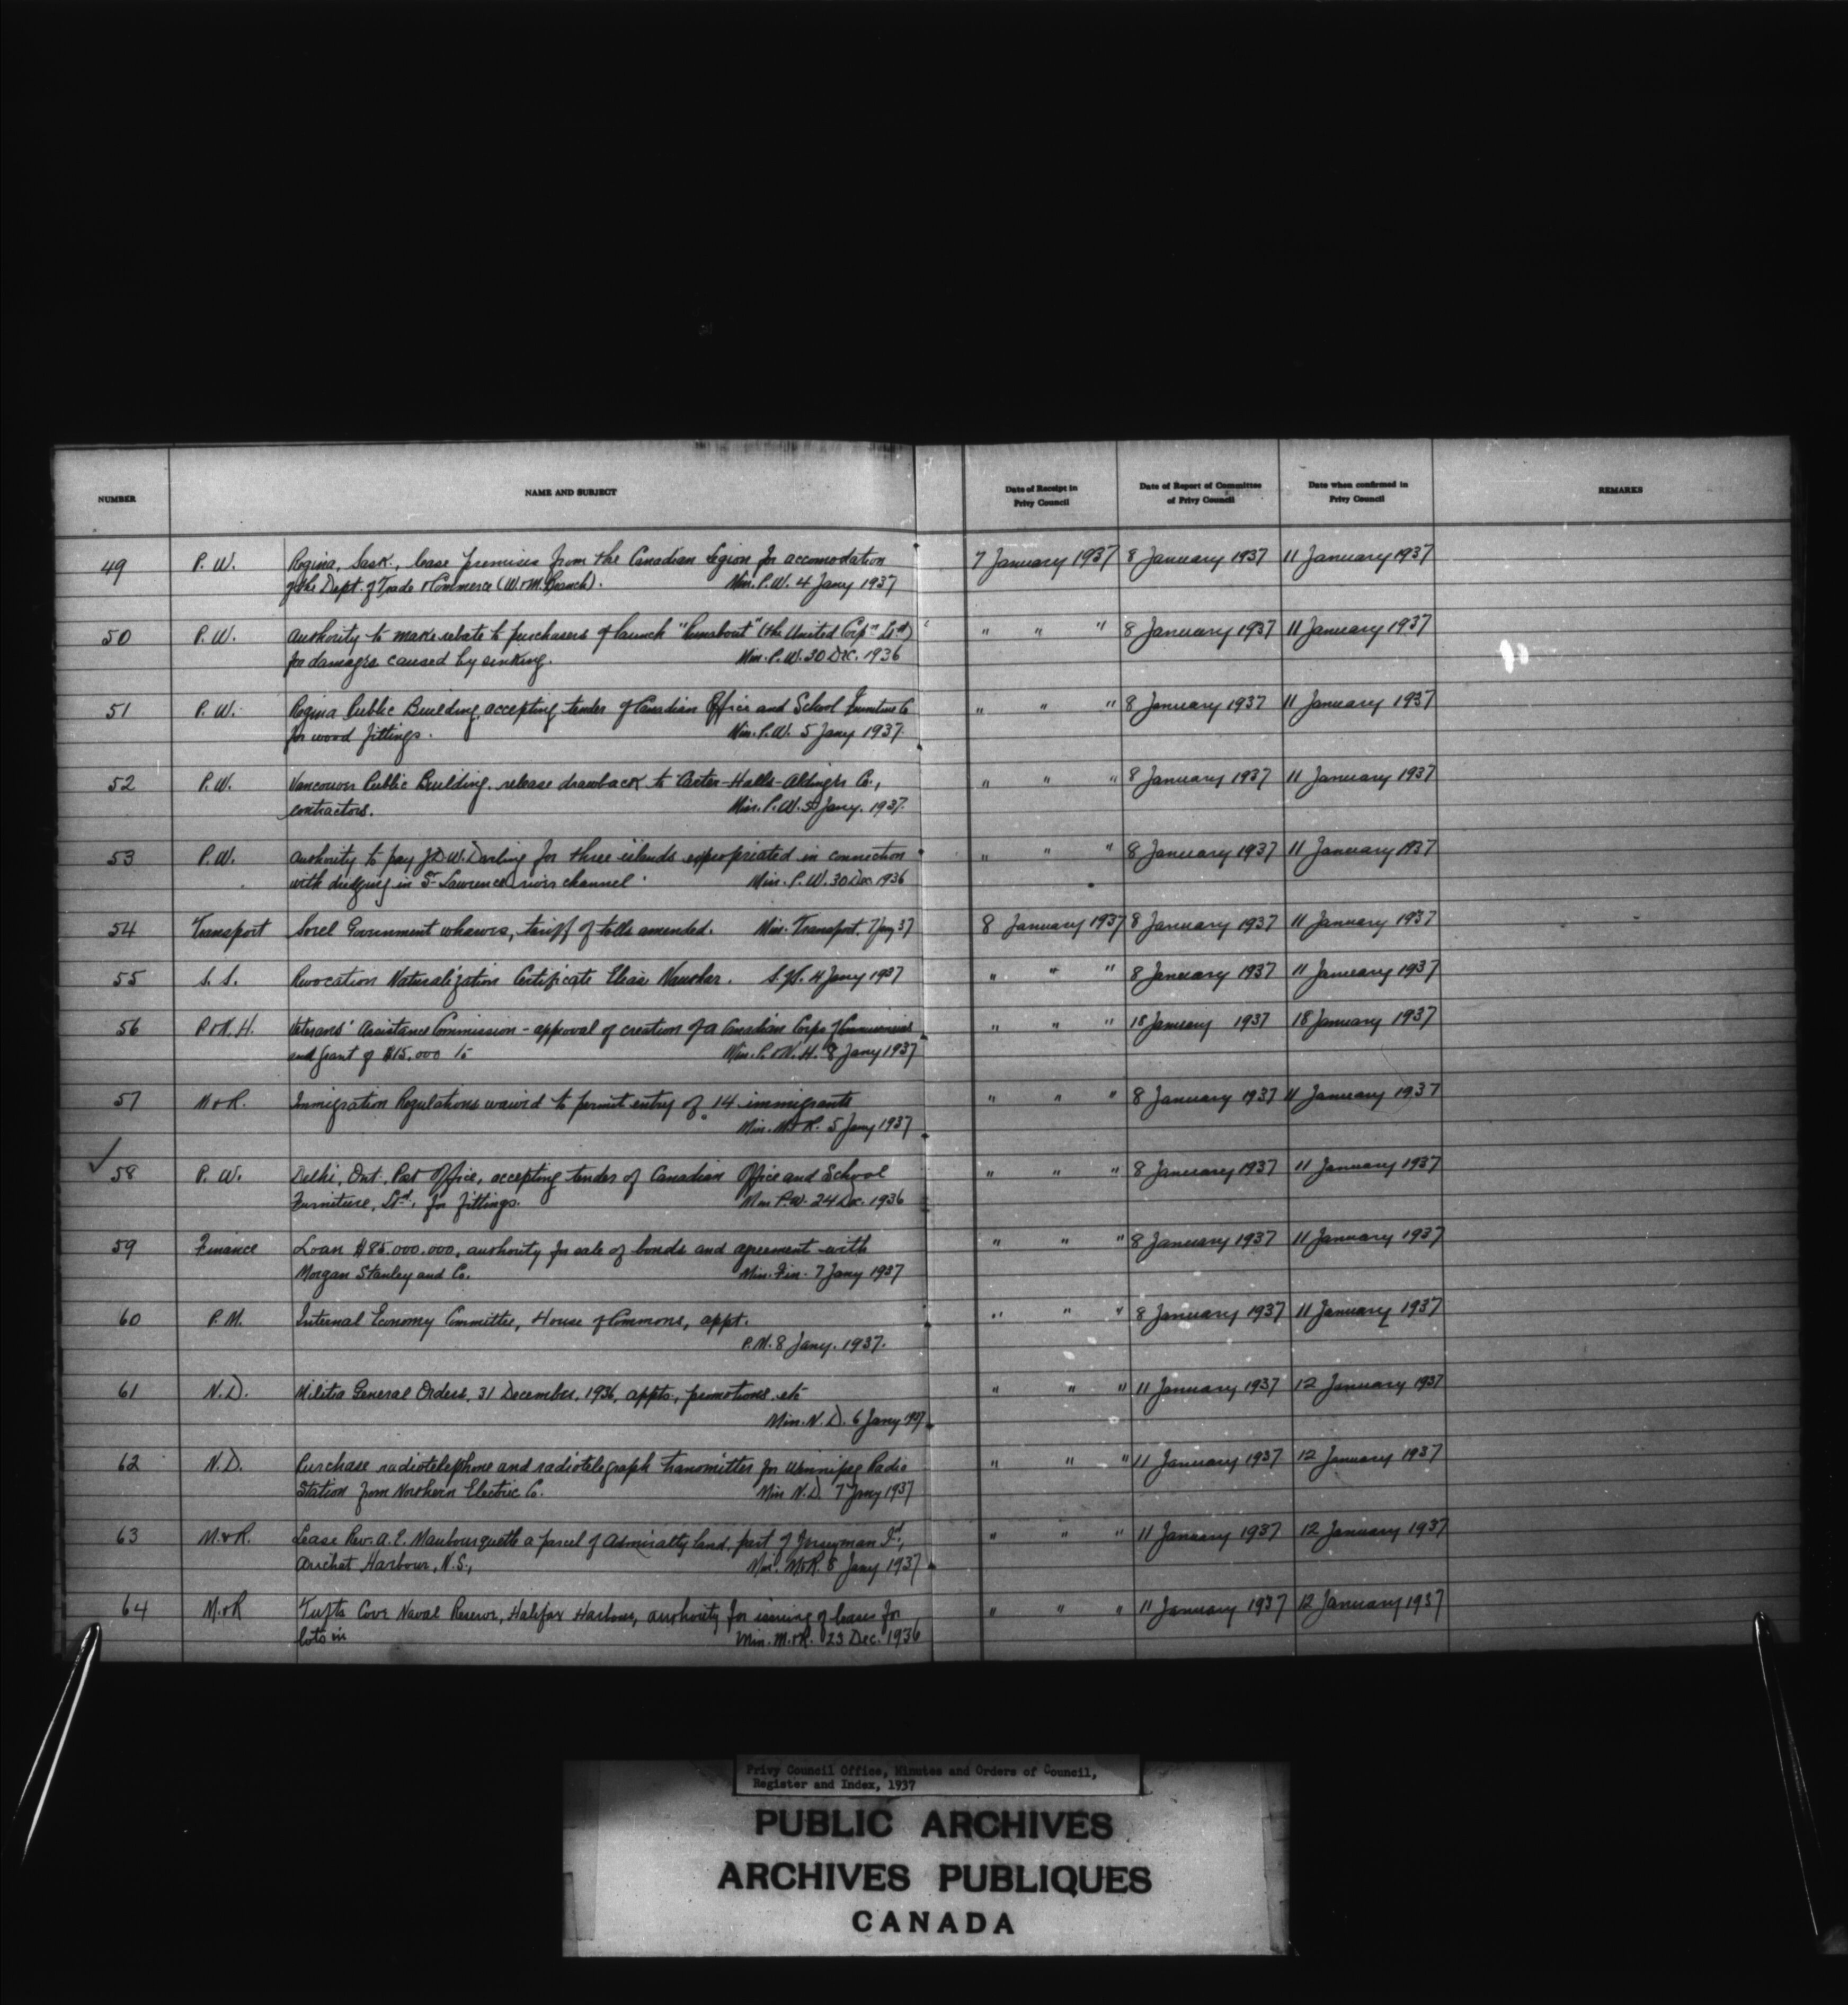 NUMBER NAME AND SUBJECT Date of Receipt in Privy Council Date of Report of Committee of Privy Council Date when confirmed in Privy Council REMARKS
49 P. W. Regina, Sask., lease premises from the Canadian Legion for accomodation 7 January 1937 8 January 1937 11 January 1937
of the Dept. of Trade & Commerce (W. & M. Branch). Min. P.W. 4 Jany 1937
50 P.W. Authority to make rebate to purchasers of launch (the United Corpn Ltd) " " " 8 January 1937 11 January 1937
for damages caused by sinking. Min. P.W. 30 Dec. 1936
51 P.W. Regina Public Building, accepting tender of Canadian Office and School Furniture Co " " " 8 January 1937 11 January 1937
for wood fittings. Min. P.W. 5 Jany 1937.
52 P.W. Vancouver Public Building, release drawback to Carter-Halls-Aldinger Co., " " " 8 January 1937 11 January 1937
contractors. Min. P.W. 5 Jany. 1937.
53 P.W. Authority to pay J.D.W. Darling for three islands expropriated in connection " " " 8 January 1937 11 January 1937
with dredging in St. Lawrence river channel. Min. P.W. 30 Dec 1936
54 Transport Sorel Government wharves, tariff of tolls amended. Min. Transport, 7 Jany 37 8 January 1937 8 January 1937 11 January 1937
55 S. S. Revocation Naturalization Certificate Elias 4 Jany 1937 " " " 8 January 1937 11 January 1937
56 P & N. H. Veterans' Assistance Commission - approval of creation of a Canadian Corps of " " " 18 January 1937 18 January 1937
and grant of $15,000 to Min. P. & N. H. 8 Jany 1937
57 M & R. Immigration Regulations waived to permit entry of 14 immigrants " " " 8 January 1937 11 January 1937
Min. M & R. 5 Jany 1937
✓ 58 P. W. Delhi, Ont., Post Office, accepting tender of Canadian Office and School " " " 8 January 1937 11 January 1937
Furniture, Ltd, for fittings. Min P.W. 24 Dec. 1936
59 Finance Loan $85.000.000, authority for sale of bonds and agreement with " " " 8 January 1937 11 January 1937
Morgan Stanley and Co. Min. Fin. 7 Jany 1937
60 P. M. Internal Economy Committee, House of Commons, appt. " " " 8 January 1937 11 January 1937
P.M. 8 Jany. 1937.
61 N.D. Militia General Orders, 31 December, 1936, appts, promotions etc " " " 11 January 1937 12 January 1937
Min. N. D. 6 Jany 1937
62 N.D. Purchase radiotelephone and radiotelegraph transmitter for Winnipeg Radio " " " 11 January 1937 12 January 1937
Station from Northern Electric Co. Min N.D. 7 Jany 1937
63 M. & R. Lease Rev. A. E. Manbourquette a parcel of Admiralty land, part of Jerseyman Id., " " " 11 January 1937 12 January 1937
Arichat Harbour, N.S., Min. M & R. Jany 1937
64 M. & R Tufts Cove Naval Reserve, Halifax Harbour, authority for issuing of leases for " " " 11 January 1937 12 January 1937
lots in Min. M. & R. 23 Dec. 1936
Privy Council Office, Minutes and Orders of Council,
Register and Index, 1937
PUBLIC ARCHIVES
ARCHIVES PUBLIQUES
CANADA